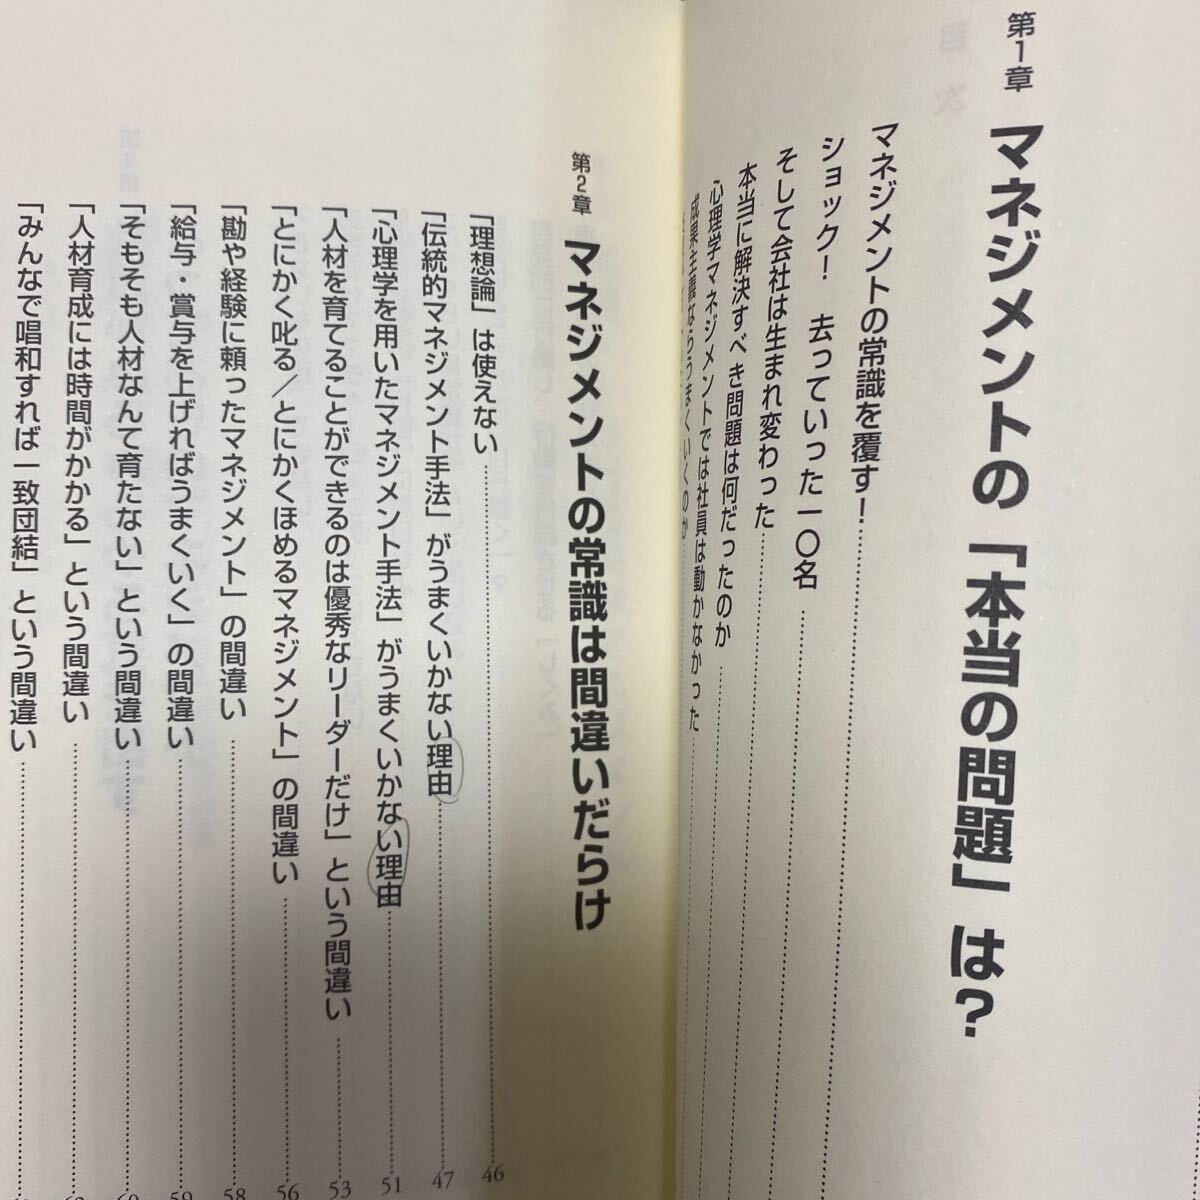 第1章 マネジメントの「本当の問題」は？
マネジメントの常識を覆す！
ショック！ 去っていった一〇名
そして会社は生まれ変わった
本当に解決すべき問題は何だったのか
心理学マネジメントでは社員は動かなかった
成果主義ならうまくいくのか
第2章 マネジメントの常識は間違いだらけ
「理想論」は使えない 46
「伝統的マネジメント手法」がうまくいかない理由 47
「心理学を用いたマネジメント手法」がうまくいかない理由 51
「人材を育てることができるのは優秀なリーダーだけ」という間違い 53
「とにかく叱る／とにかくほめるマネジメント」の間違い 56
「勘や経験に頼ったマネジメント」の間違い 58
「給与・賞与を上げればうまくいく」の間違い 59
「そもそも人材なんて育たない」という間違い 60
「人材育成には時間がかかる」という間違い
「みんなで唱和すれば一致団結」という間違い